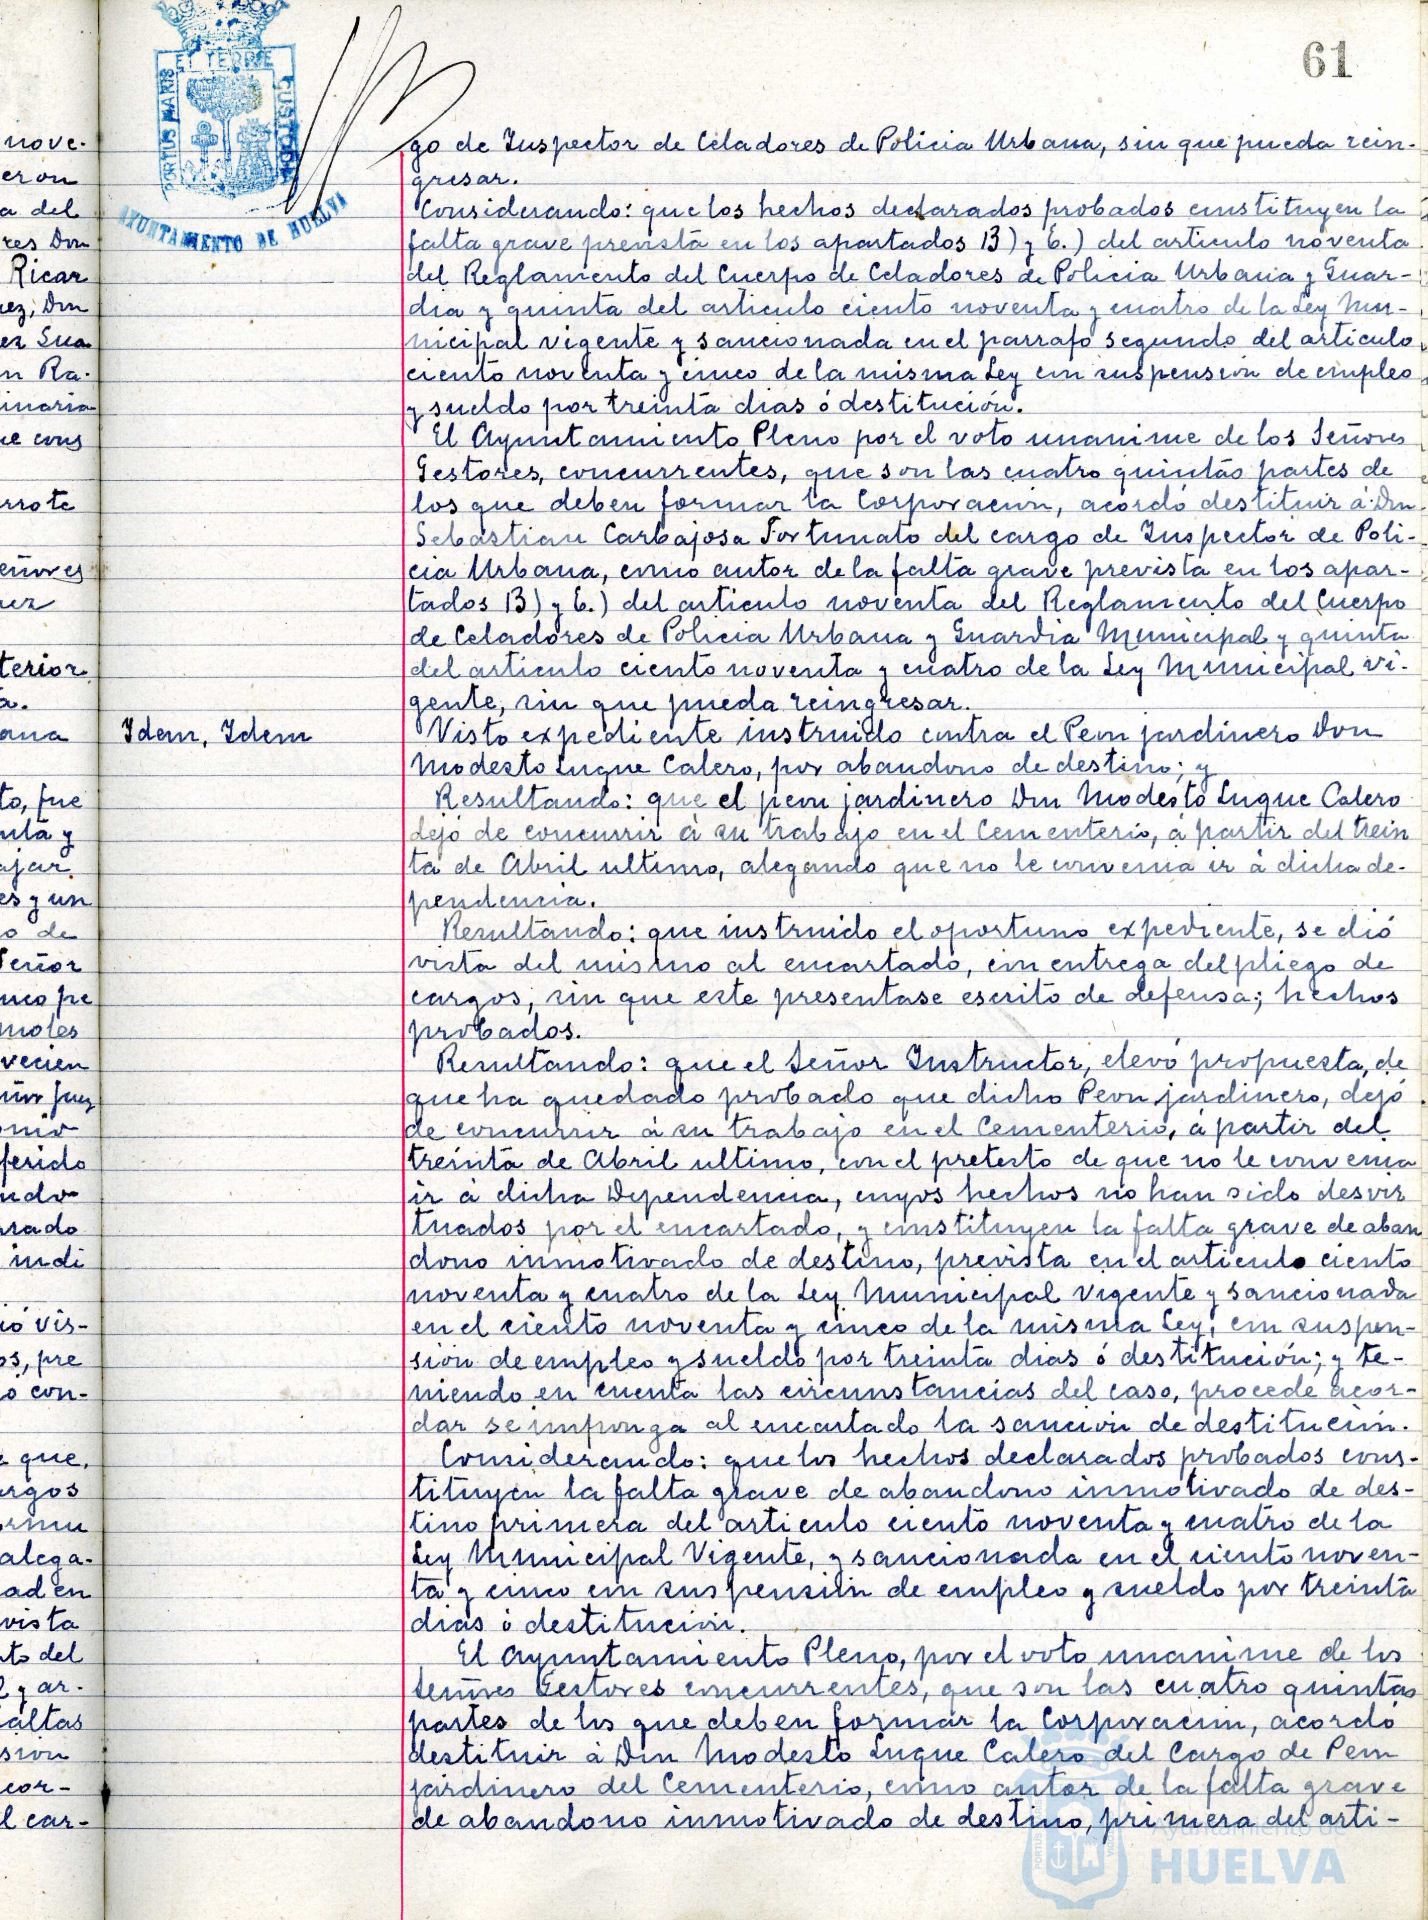 61
PORTUS MARIS ET TERRE CUSTODIA
AYUNTAMIENTO DE HUELVA
go de Inspector de Celadores de Policia Urbana, sin que pueda rein-
gresar.
Considerando: que los hechos declarados probados constituyen la
falta grave prevista en los apartados B) y E.) del articulo noventa
del Reglamento del Cuerpo de Celadores de Policia Urbana y Guar-
dia y quinta del articulo ciento noventa y cuatro de la Ley Mu-
nicipal vigente y sancionada en el parrafo segundo del articulo
ciento noventa y cinco de la misma Ley con suspensión de empleo
y sueldo por treinta dias ó destitución.
El Ayuntamiento Pleno por el voto unanime de los Señores
Gestores, concurrentes, que son las cuatro quintas partes de
los que deben formar la Corporación, acordó destituir á Don
Sebastian Carbajosa Fortunato del cargo de Inspector de Poli-
cia Urbana, como autor de la falta grave prevista en los apar-
tados B) y E.) del articulo noventa del Reglamento del Cuerpo
de Celadores de Policia Urbana y Guardia Municipal y quinta
del articulo ciento noventa y cuatro de la Ley Municipal vi-
gente, sin que pueda reingresar.
Idem, Idem
Visto expediente instruido contra el Peon jardinero Don
Modesto Luque Calero, por abandono de destino; y
Resultando: que el peon jardinero Don Modesto Luque Calero
dejó de concurrir á su trabajo en el Cementerio, á partir del trein
ta de Abril ultimo, alegando que no le convenia ir á dicha de-
pendencia.
Resultando: que instruido el oportuno expediente, se dió
vista del mismo al encartado, con entrega del pliego de
cargos, sin que este presentase escrito de defensa; hechos
probados.
Resultando: que el Señor Instructor, elevó propuesta, de
que ha quedado probado que dicho Peon jardinero, dejó
de concurrir á su trabajo en el Cementerio, á partir del
treinta de Abril ultimo, con el pretesto de que no le convenia
ir á dicha Dependencia, cuyos hechos no han sido desvir
tuados por el encartado, y constituyen la falta grave de aban
dono inmotivado de destino, prevista en el articulo ciento
noventa y cuatro de la Ley Municipal vigente y sancionada
en el ciento noventa y cinco de la misma Ley, con suspen-
sión de empleo y sueldo por treinta dias ó destitución; y te-
niendo en cuenta las circunstancias del caso, procede acor-
dar se imponga al encartado la sanción de destitución.
Considerando: que los hechos declarados probados cons-
tituyen la falta grave de abandono inmotivado de des-
tino primera del articulo ciento noventa y cuatro de la
Ley Municipal Vigente, y sancionada en el ciento noven-
ta y cinco con suspensión de empleo y sueldo por treinta
dias ó destitución.
El Ayuntamiento Pleno, por el voto unanime de los
Señores Gestores concurrentes, que son las cuatro quintas
partes de los que deben formar la Corporacion, acordó
destituir á Don Modesto Luque Calero del Cargo de Peon
jardinero del Cementerio, como autor de la falta grave
de abandono inmotivado de destino, primera del arti-
Ayuntamiento de
HUELVA